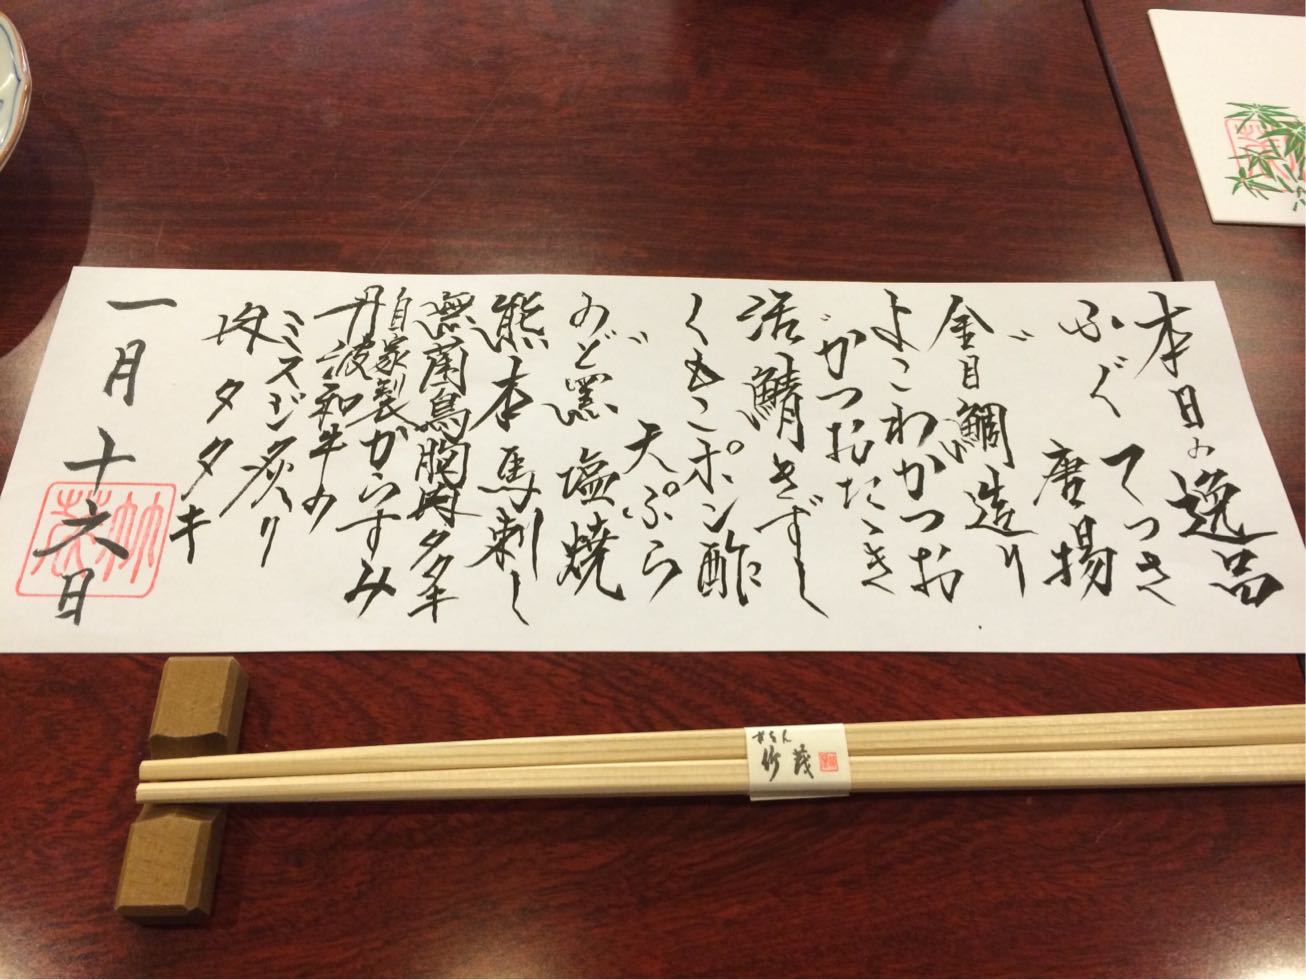 本日の逸品
ふぐ てっさ
〃 唐揚
金目鯛造り
よこわかつお
〃かつおたゝき
活鯖きずし
くもこポン酢
〃 天ぷら
のど黒 塩焼
熊本馬刺し
無菌鳥胸肉タタキ
自家製からすみ
丹波和牛の
ミスジ炙り
〃 タタキ
一月十六日
竹茂
竹茂